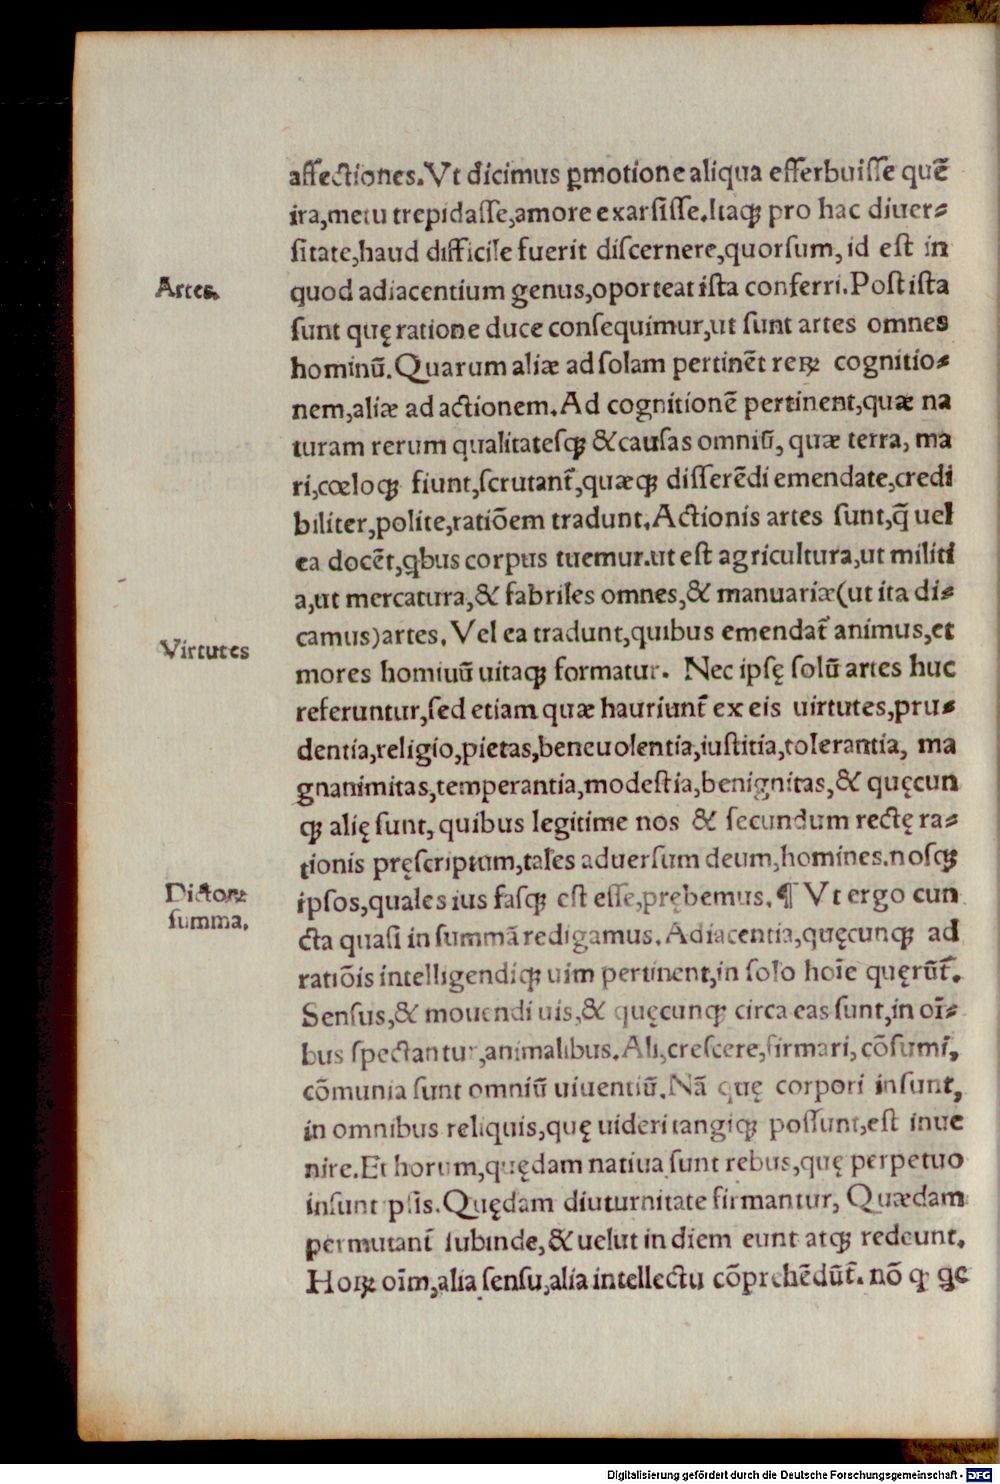 affectiones. Vt dicimus ꝑmotione aliqua efferbuiſſe quē
ira, metu trepidaſſe, amore exarſiſſe. Itaqꝫ pro hac diuer-
ſitate, haud difficile fuerit diſcernere, quorſum, id eſt in
Artes.
quod adiacentium genus, oporteat iſta conferri. Poſt iſta
ſunt quę ratione duce conſequimur, ut ſunt artes omnes
hominū. Quarum aliæ ad ſolam pertinēt reꝝ cognitio-
nem, aliæ ad actionem. Ad cognitionē pertinent, quæ na
turam rerum qualitateſqꝫ & cauſas omniū, quæ terra, ma
ri, cœloqꝫ fiunt, ſcrutant᷑, quæqꝫ differēdi emendate, credi
biliter, polite, ratiōem tradunt. Actionis artes ſunt, q̄ uel
ea docēt, qbus corpus tuemur. ut eſt agricultura, ut militi
a, ut mercatura, & fabriles omnes, & manuariæ (ut ita di-
camus) artes. Vel ea tradunt, quibus emendat᷑ animus, et
Virtutes
mores homiuū uitaqꝫ formatur. Nec ipſę ſolū artes huc
referuntur, ſed etiam quæ hauriunt᷑ ex eis uirtutes, pru-
dentia, religio, pietas, beneuolentia, iuſtitia, tolerantia, ma
gnanimitas, temperantia, modeſtia, benignitas, & quęcun
qꝫ alię ſunt, quibus legitime nos & ſecundum rectę ra-
tionis pręſcriptum, tales aduerſum deum, homines. noſqꝫ
Dictoꝝ
ſumma.
ipſos, quales ius faſqꝫ eſt eſſe, prębemus. ¶ Vt ergo cun
cta quaſi in ſummā redigamus. Adiacentia, quęcunqꝫ ad
ratiōis intelligendiqꝫ uim pertinent, in ſolo hoīe quęrūt᷑.
Senſus, & mouendi uis, & quęcunqꝫ circa eas ſunt, in oī-
bus ſpectantur, animalibus. Ali, creſcere, firmari, cōſumi,
cōmunia ſunt omniū uiuentiū. Nā quę corpori inſunt,
in omnibus reliquis, quę uideri tangiqꝫ poſſunt, eſt inue
nire. Et horum, quędam natiua ſunt rebus, quę perpetuo
inſunt pſis. Quędam diuturnitate firmantur, Quædam
permutant᷑ ſubinde, & uelut in diem eunt atqꝫ redeunt.
Hoꝝ oīm, alia ſenſu, alia intellectu cōprehēdūt᷑. nō qꝫ ge
Digitalisierung gefördert durch die Deutsche Forschungsgemeinschaft - DFG